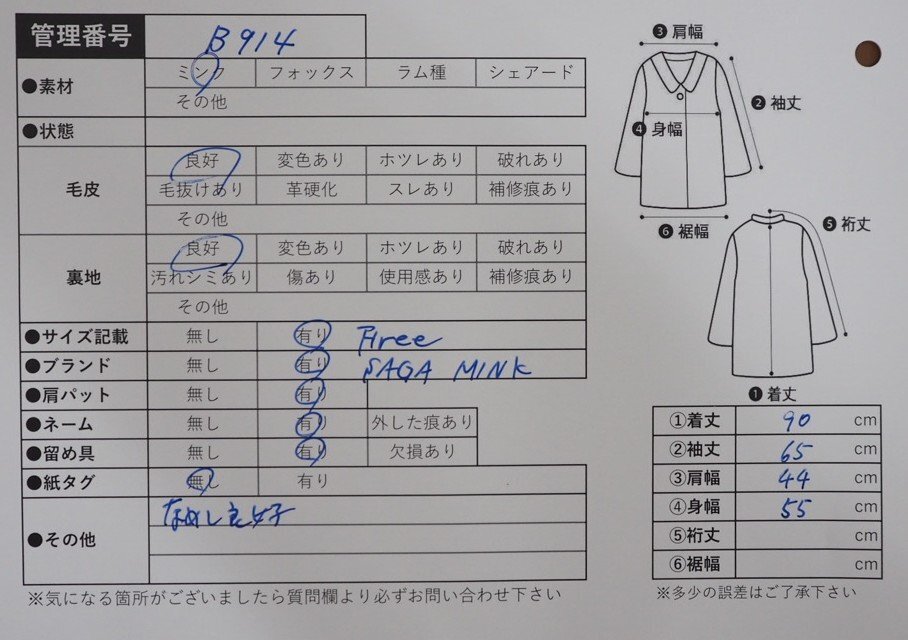 管理番号 B914
●素材 ミンク フォックス ラム種 シェアード
その他
●状態
毛皮 良好 変色あり ホツレあり 破れあり
毛抜けあり 革硬化 スレあり 補修痕あり
その他
裏地 良好 変色あり ホツレあり 破れあり
汚れシミあり 傷あり 使用感あり 補修痕あり
その他
●サイズ記載 無し 有り Free
●ブランド 無し 有り SAGA MINK
●肩パット 無し 有り
●ネーム 無し 有り 外した痕あり
●留め具 無し 有り 欠損あり
●紙タグ 無し 有り
●その他 なめし良好
※気になる箇所がございましたら質問欄より必ずお問い合わせ下さい
❸肩幅
❷袖丈
❹身幅
❻裾幅
❺裄丈
❶着丈
①着丈 90 cm
②袖丈 65 cm
③肩幅 44 cm
④身幅 55 cm
⑤裄丈 cm
⑥裾幅 cm
※多少の誤差はご了承下さい